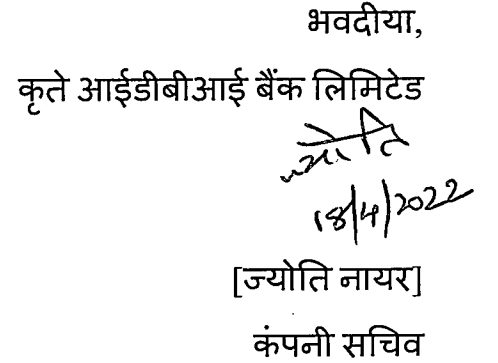 भवदीया,
कृते आईडीबीआई बैंक लिमिटेड
ज्योति
18/4/2022
[ज्योति नायर]
कंपनी सचिव